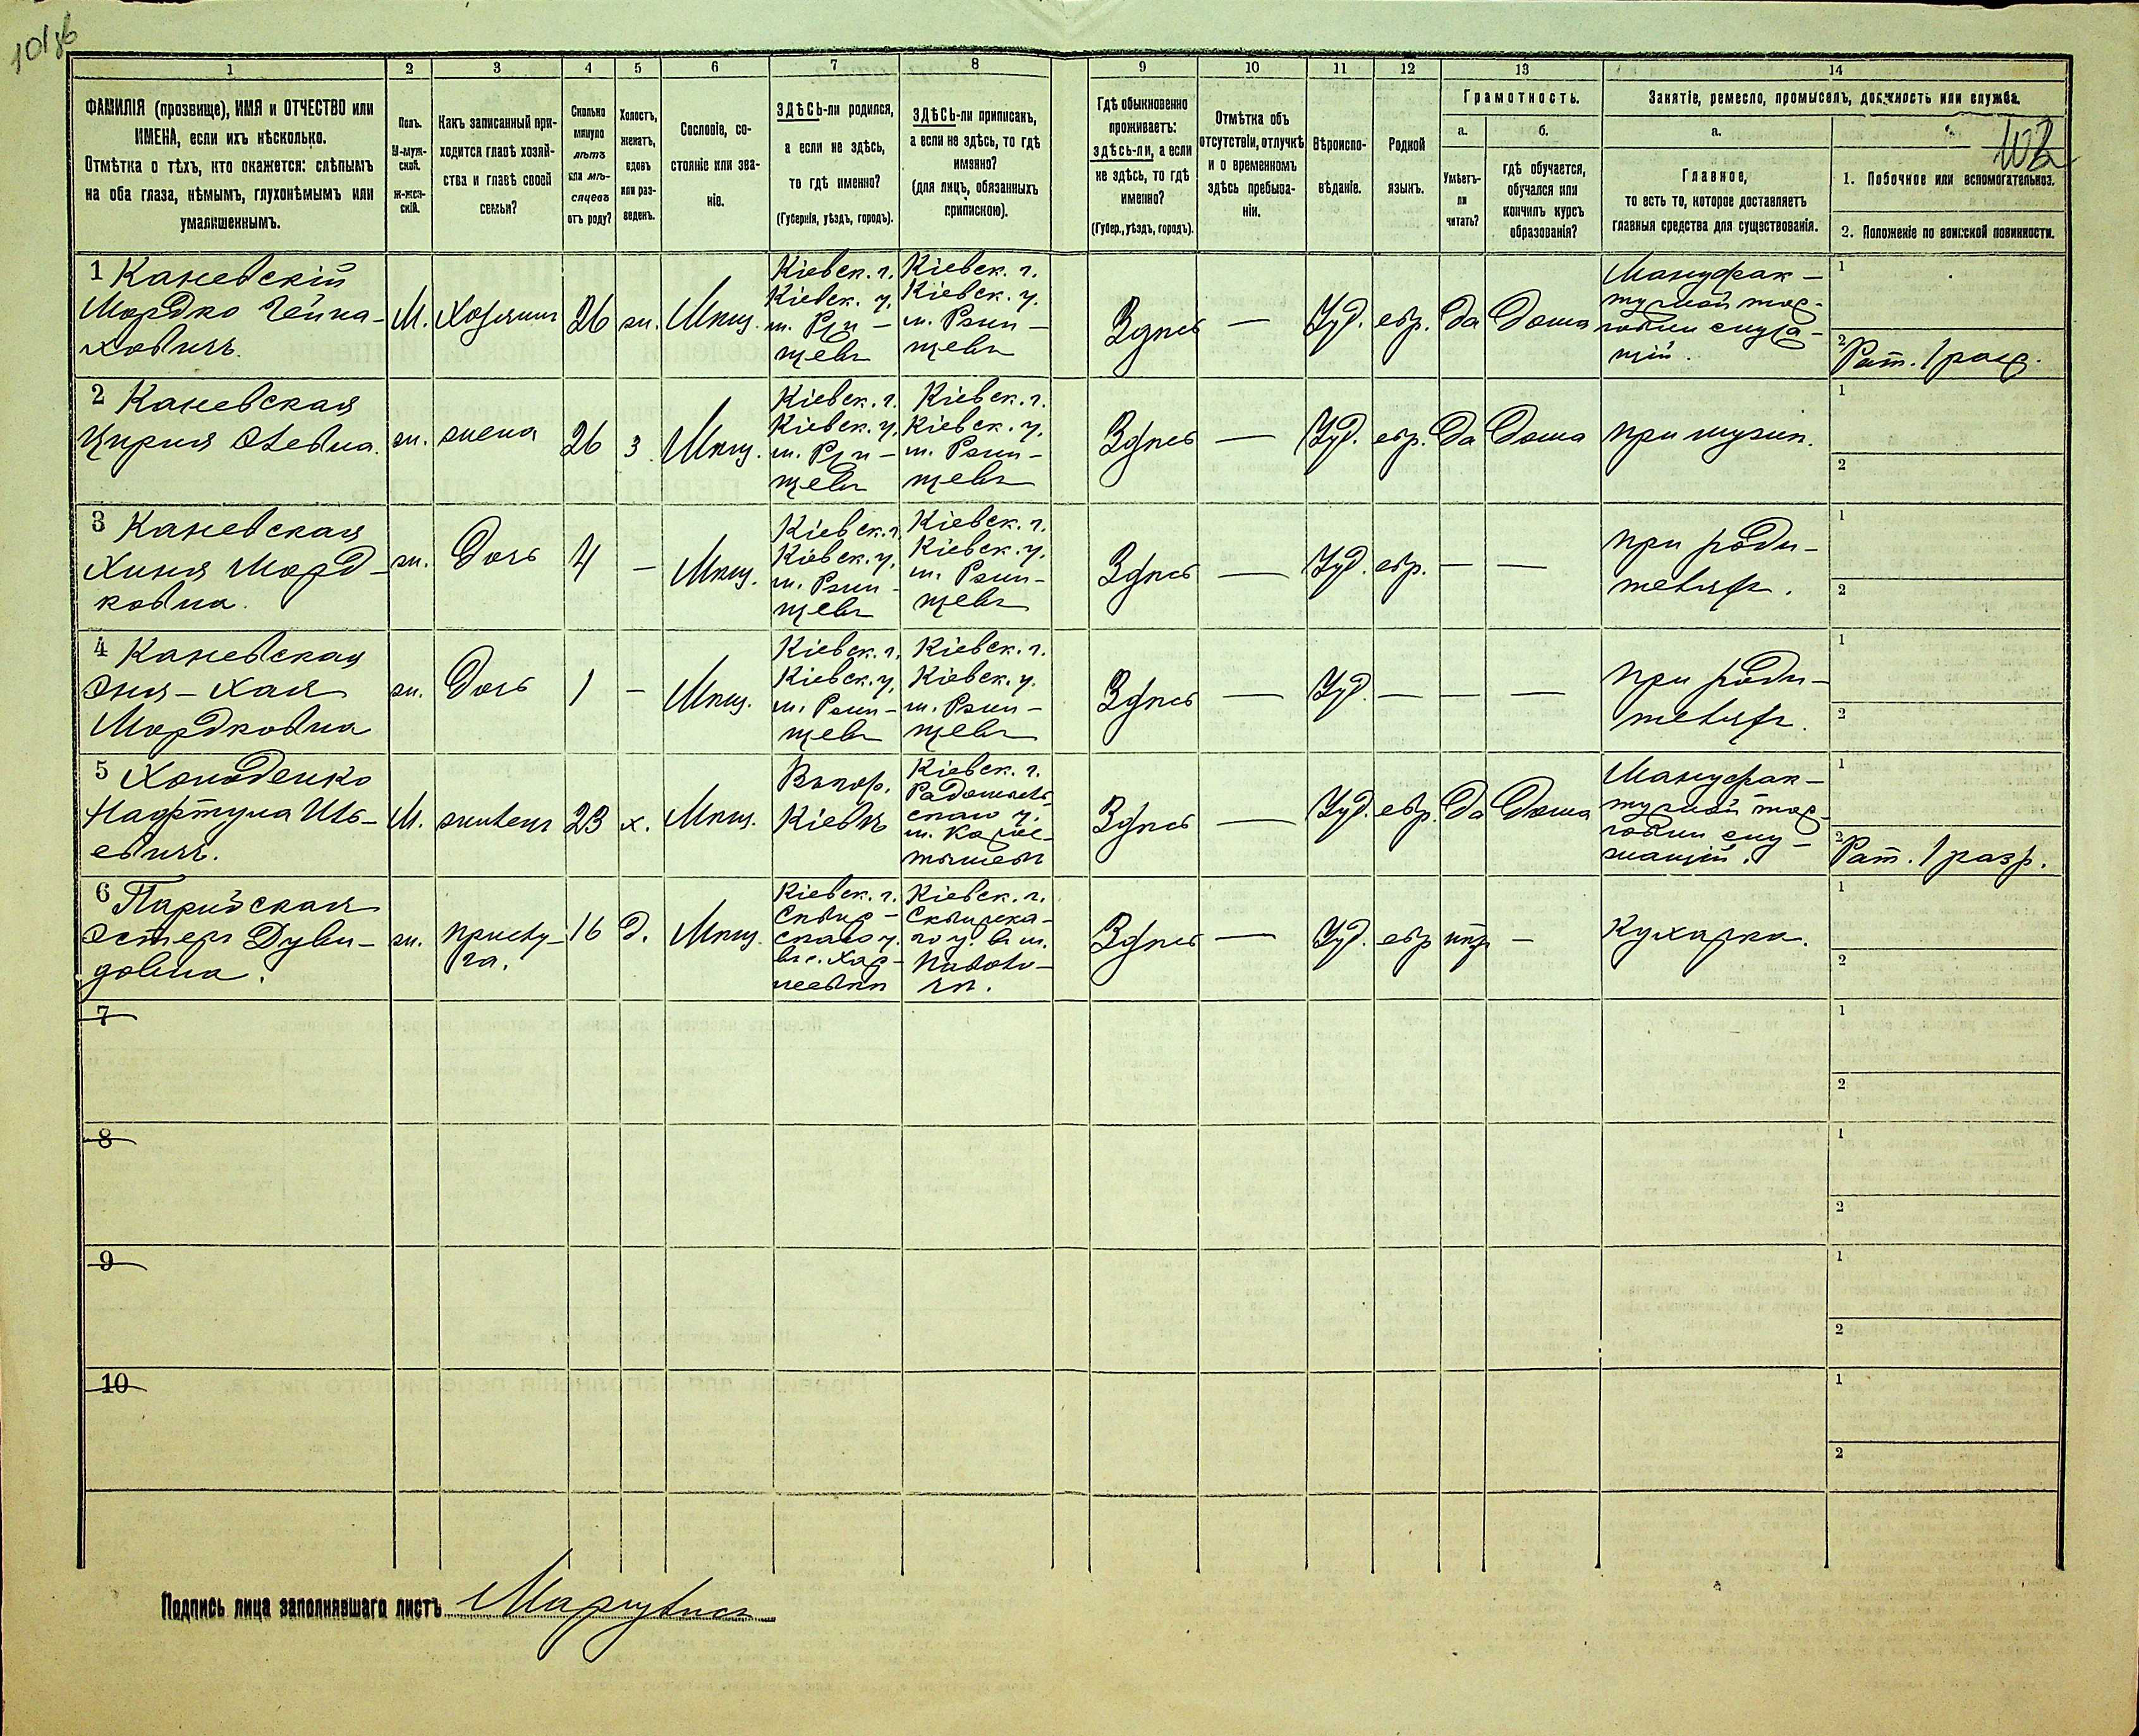 101/86
1 2 3 4 5 6 7 8 9 10 11 12 13 14
ФАМИЛІЯ (прозвище), ИМЯ и ОТЧЕСТВО или
ИМЕНА, если ихъ нѣсколько.
Отмѣтка о тѣхъ, кто окажется: слѣпымъ
на оба глаза, нѣмымъ, глухонѣмымъ или
умалишеннымъ.
Полъ.
М-муж-
ской.
Ж-жен-
скій.
Какъ записанный при-
ходится главѣ хозяй-
ства и главѣ своей
семьи?
Сколько
минуло
лѣтъ
или мѣ-
сяцевъ
отъ роду?
Холостъ,
женатъ,
вдовъ
или раз-
веденъ.
Сословіе, со-
стояніе или зва-
ніе.
ЗДѢСЬ-ли родился,
а если не здѣсь,
то гдѣ именно?
(Губернія, уѣздъ, городъ).
ЗДѢСЬ-ли приписанъ,
а если не здѣсь, то гдѣ
именно?
(для лицъ, обязанныхъ
припискою).
Гдѣ обыкновенно
проживаетъ:
здѣсь-ли, а если
не здѣсь, то гдѣ
именно?
(Губер., уѣздъ, городъ).
Отмѣтка объ
отсутствіи, отлучкѣ
и о временномъ
здѣсь пребыва-
ніи.
Вѣроиспо-
вѣданіе.
Родной
языкъ.
Грамотность.
а.
Умѣетъ-
ли
читать?
б.
гдѣ обучается,
обучался или
кончилъ курсъ
образованія?
Занятіе, ремесло, промыселъ, должность или служба.
а.
Главное,
то есть то, которое доставляетъ
главныя средства для существованія.
102
1. Побочное или вспомогательное.
2. Положеніе по воинской повинности.
1 Каневскій
Мордко Гейна-
ховичъ.
М.
Хозяинъ
26
ж.
Мѣщ.
Кіевск. г.
Кіевск. у.
м. Ржи-
щевъ
Кіевск. г.
Кіевск. у.
м. Ржи-
щевъ
Здѣсь
—
Іуд.
евр.
Да
Дома
Мануфак-
турной тор-
говли служа-
щій.
1
2
Рат. 1 разр.
2 Каневская
Цирля Левна.
ж.
жена
26
З
Мѣщ.
Кіевск. г.
Кіевск. у.
м. Ржи-
щевъ
Кіевск. г.
Кіевск. у.
м. Ржи-
щевъ
Здѣсь
—
Іуд.
евр.
Да
Дома
при мужѣ.
1
2
3 Каневская
Хиня Морд-
ковна.
ж.
Дочь
4
—
Мѣщ.
Кіевск. г.
Кіевск. у.
м. Ржи-
щевъ
Кіевск. г.
Кіевск. у.
м. Ржи-
щевъ
Здѣсь
—
Іуд.
евр.
—
—
при роди-
теляхъ.
1
2
4 Каневская
Эня-Хая
Мордковна
ж.
Дочь
1
—
Мѣщ.
Кіевск. г.
Кіевск. у.
м. Ржи-
щевъ
Кіевск. г.
Кіевск. у.
м. Ржи-
щевъ
Здѣсь
—
Іуд.
—
—
—
при роди-
теляхъ.
1
2
5 Холоденко
Нафтула Иль-
евичъ.
М.
жилецъ
23
х.
Мѣщ.
Въ гор.
Кіевѣ
Кіевск. г.
Радомысль-
скаго у.
м. Корос-
тышевъ
Здѣсь
—
Іуд.
евр.
Да
Дома
Мануфак-
турной тор-
говли слу-
жащій.
1
2
Рат. 1 разр.
6 Парийская
Эстеръ Дуви-
довна.
ж.
прислу-
га.
16
Д.
Мѣщ.
Кіевск. г.
Сквир-
скаго у.
въ с. Хар-
леевки
Кіевск. г.
Сквирска-
го у. въ м.
Паволо-
чи.
Здѣсь
—
Іуд.
евр
нѣт
—
Кухарка.
1
2
7
1
2
8
1
2
9
1
2
10
1
2
Подпись лица заполнявшаго листъ Маргулисъ